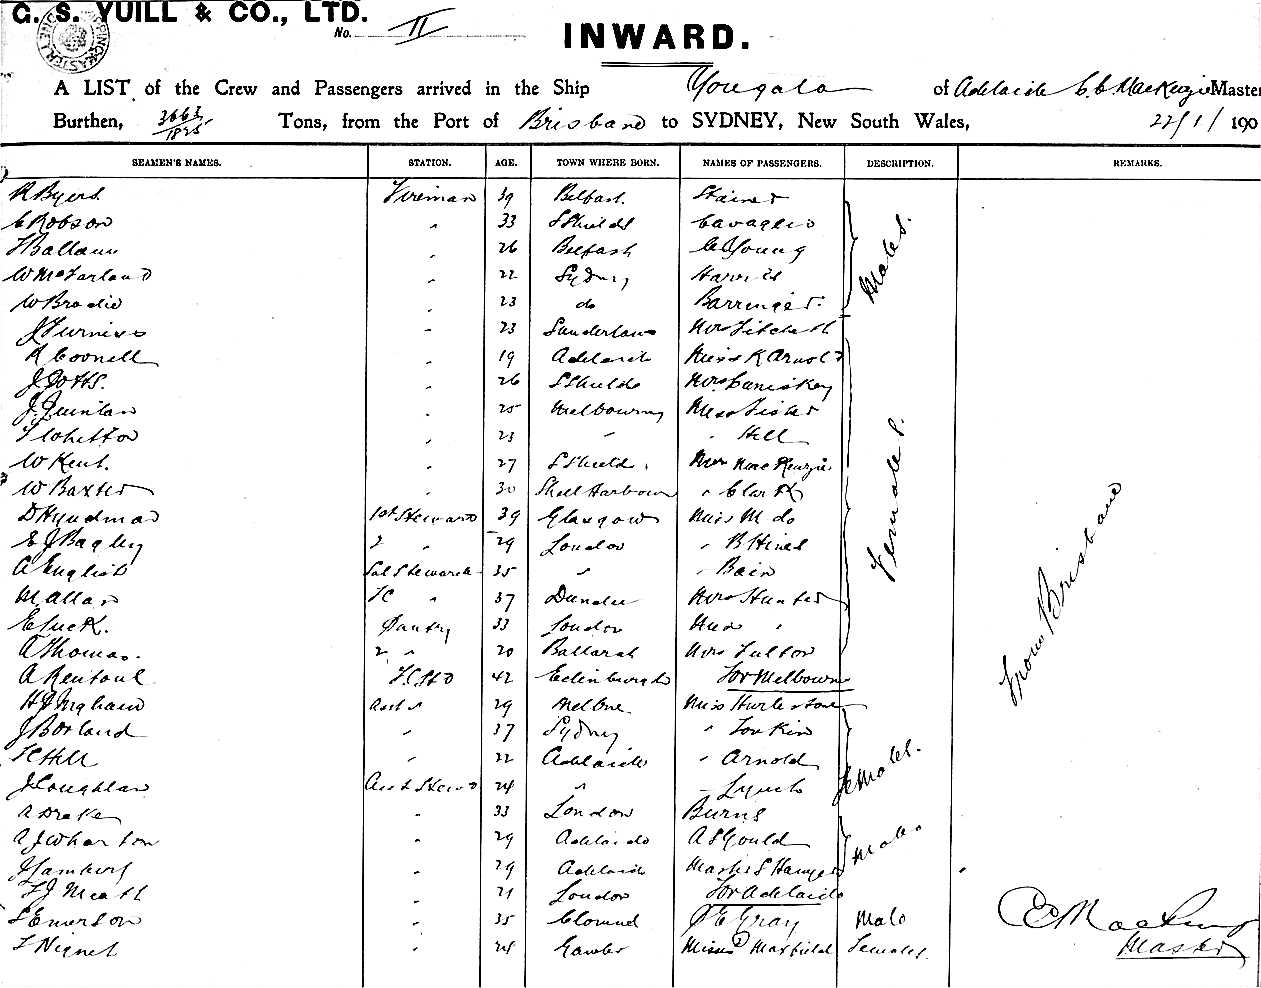 G. S. YUILL & CO., LTD.
No. II
INWARD.
A LIST of the Crew and Passengers arrived in the Ship Yongala of Adelaide C. C. MacKenzie Master
Burthen, 3663/1825 Tons, from the Port of Brisbane to SYDNEY, New South Wales, 22/1/190
SEAMEN'S NAMES. STATION. AGE. TOWN WHERE BORN. NAMES OF PASSENGERS. DESCRIPTION. REMARKS.
R Byers. Fireman 39 Belfast.
C Robson " 33 S Shields
" 26 Belfast C A Young
W McFarland " 22 Sydney Harris
W Brodie " 23 do Barringer. Males.
J Furniss " 23 Sunderland Mrs
R Connell " 19 Adelaide Miss K Arnold
J Potts. " 26 S Shields Mrs
J Quinlan " 25 Melbourne Miss Fisher
" 23 " " Hill
W Kent. " 27 S Shields Mrs MacKenzie
W Baxter " 30 Shell Harbour " Clark
D Hyndman 1st Steward 39 Glasgow Miss M do Females.
E J Bagley 2 " 29 London " B Hines
A English Sal Steward 35 " " Bain
M Allan FC " 37 Dundee Mrs Hunter
E Luck. Pantry 33 London
A Thomas. 2 " 20 Ballarat Mrs Fulton
A Rentoul 42 Edinburgh For Melbourne From Brisbane
H J Ingham Asst " 29 Melbne Miss
J Borland " 37 Sydney "
F C Hill " 22 Adelaide " Arnold
J Coughlan Asst Stewd 24 " " Lynch Females.
A Drake " 33 London Burns
A J Wharton " 29 Adelaide A S Gould Males
" 29 Adelaide Master S
F J Meath " 21 London For Adelaide
S Emerson " 35 E Gray Male
" 24 Gawler Misses Maxfield Females.
Master